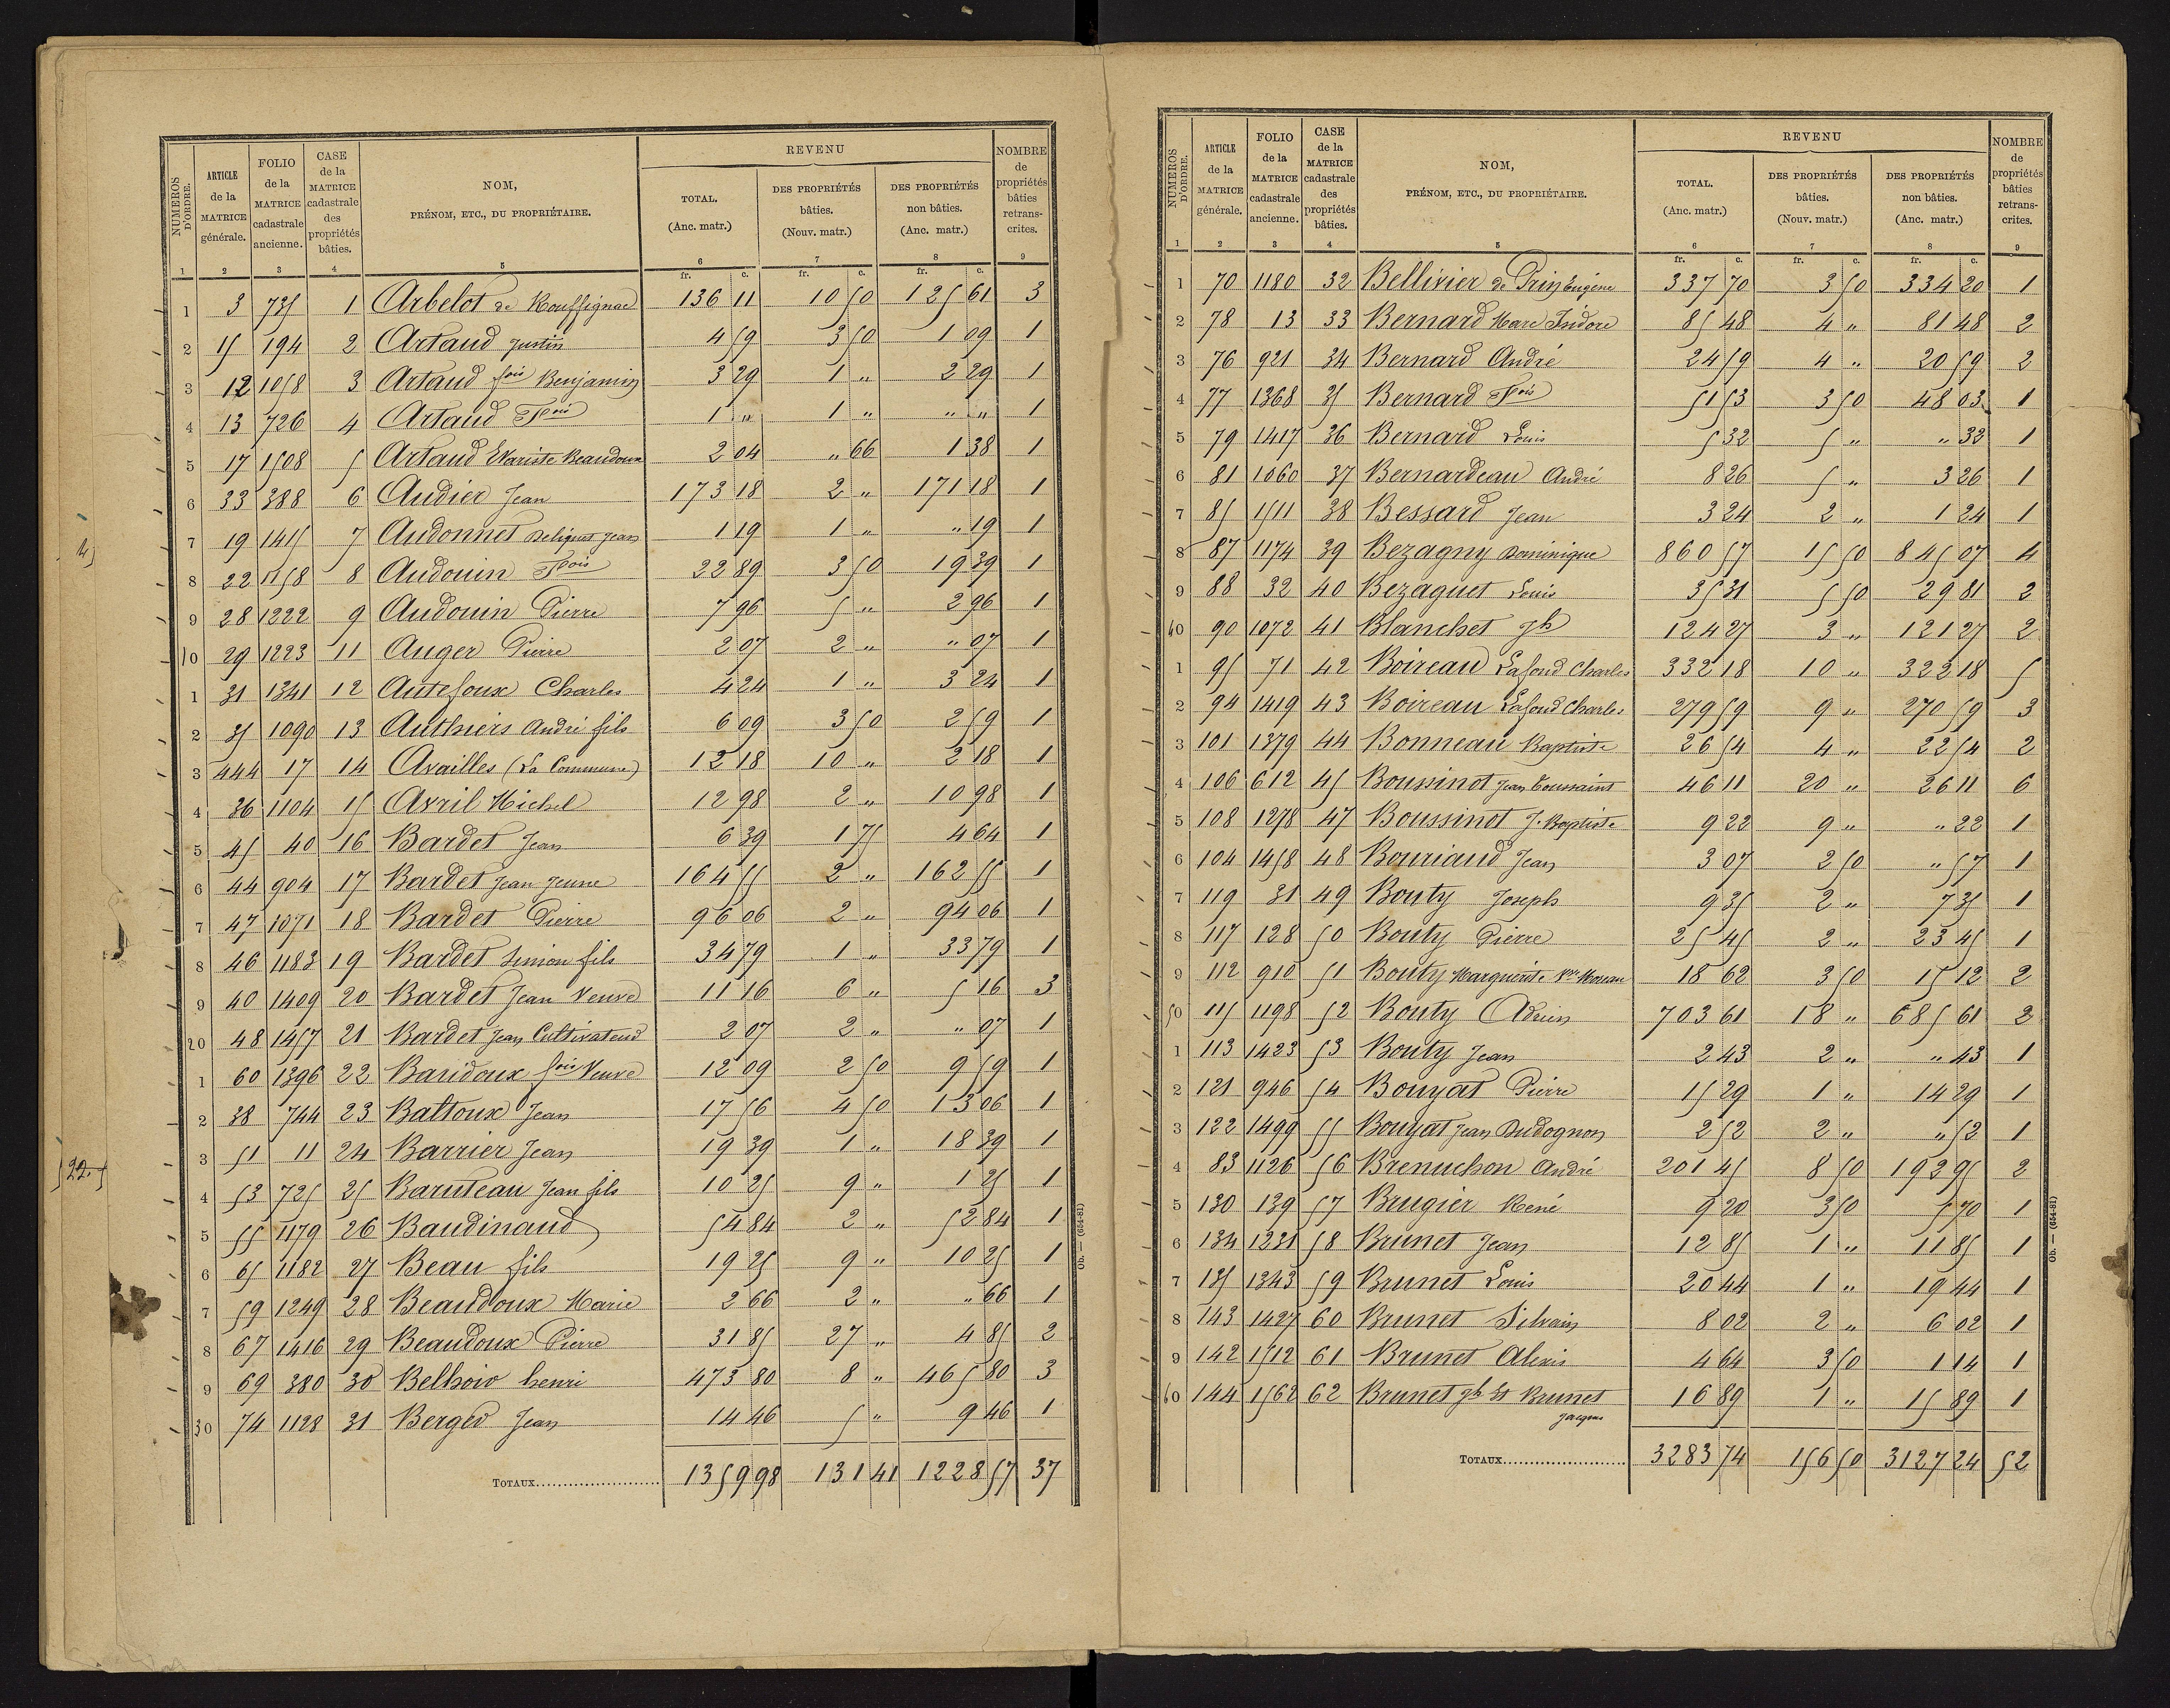 NUMEROS D'ORDRE. ARTICLE de la MATRICE générale. FOLIO de la MATRICE cadastrale ancienne. CASE de la MATRICE cadastrale des propriétés bâties. NOM, PRÉNOM, ETC., DU PROPRIÉTAIRE. REVENU TOTAL. (Anc. matr.) DES PROPRIÉTÉS bâties. (Nouv. matr.) DES PROPRIÉTÉS non bâties. (Anc. matr.) NOMBRE de propriétés bâties retranscrites.
1 2 3 4 5 6 7 8 9
fr. c. fr. c. fr. c.
1 3 735 1 Arbelot de Rouffignac 136 11 10 50 125 61 3
2 15 194 2 Artaud Justin 4 59 3 50 1 09 1
3 12 1058 3 Artaud fois Benjamin 3 29 1 " 2 29 1
4 13 726 4 Artaud Fois 1 " 1 " " " 1
5 17 1508 5 Artaud Evariste Beaudoux 2 04 " 66 1 38 1
6 33 388 6 Audier Jean 173 18 2 " 171 18 1
7 19 1415 7 Audonnet Jean 1 19 1 " " 19 1
8 22 1158 8 Audouin Fois 22 89 3 50 19 39 1
9 28 1222 9 Audouin Pierre 7 96 5 " 2 96 1
10 29 1223 11 Auger Pierre 2 07 2 " " 07 1
1 31 1341 12 Autefoux Charles 4 24 1 " 3 24 1
2 35 1090 13 Authiers André fils 6 09 3 50 2 59 1
3 444 17 14 Availles (La Commune) 12 18 10 " 2 18 1
4 36 1104 15 Avril Michel 12 98 2 " 10 98 1
5 45 40 16 Bardet Jean 6 39 1 75 4 64 1
6 44 904 17 Bardet Jean Jeune 164 55 2 " 162 55 1
7 47 1071 18 Bardet Pierre 96 06 2 " 94 06 1
8 46 1183 19 Bardet Simon fils 34 79 1 " 33 79 1
9 40 1409 20 Bardet Jean Veuve 11 16 6 " 5 16 3
20 48 1457 21 Bardet Jean Cultivateur 2 07 2 " " 07 1
1 60 1396 22 Baudoux fois Veuve 12 09 2 50 9 59 1
2 38 744 23 Baltoux Jean 17 56 4 50 13 06 1
3 51 11 24 Barrier Jean 19 39 1 " 18 39 1
4 53 725 25 Baruteau Jean fils 10 25 9 " 1 25 1
5 55 1179 26 Baudinaud 54 84 2 " 52 84 1
6 65 1182 27 Beau fils 19 25 9 " 10 25 1
7 59 1249 28 Beaudoux Marie 2 66 2 " " 66 1
8 67 1416 29 Beaudoux Pierre 31 85 27 " 4 85 2
9 69 380 30 Belhoir henri 473 80 8 " 465 80 3
30 74 1128 31 Berger Jean 14 46 5 " 9 46 1
TOTAUX 1359 98 131 41 1228 57 37
Ob. — (654-81)
NUMEROS D'ORDRE. ARTICLE de la MATRICE générale. FOLIO de la MATRICE cadastrale ancienne. CASE de la MATRICE cadastrale des propriétés bâties. NOM, PRÉNOM, ETC., DU PROPRIÉTAIRE. REVENU TOTAL. (Anc. matr.) DES PROPRIÉTÉS bâties. (Nouv. matr.) DES PROPRIÉTÉS non bâties. (Anc. matr.) NOMBRE de propriétés bâties retranscrites.
1 2 3 4 5 6 7 8 9
fr. c. fr. c. fr. c.
1 70 1180 32 Bellivier de Prin Eugène 337 70 3 50 334 20 1
2 78 13 33 Bernard Marc Isidore 85 48 4 " 81 48 2
3 76 921 34 Bernard André 24 59 4 " 20 59 2
4 77 1368 35 Bernard Fois 51 53 3 50 48 03 1
5 79 1417 36 Bernard Louis 5 32 5 " " 32 1
6 81 1060 37 Bernardeau André 8 26 5 " 3 26 1
7 85 1511 38 Bessard Jean 3 24 2 " 1 24 1
8 87 1174 39 Bezagny Dominique 860 57 15 50 845 07 4
9 88 32 40 Bezaguet Louis 35 31 5 50 29 81 2
40 90 1072 41 Blanchet Jh 124 27 3 " 121 27 2
1 95 71 42 Boireau Lafond Charles 332 18 10 " 322 18 5
2 94 1419 43 Boireau Lafond Charles 279 59 9 " 270 59 3
3 101 1379 44 Bonneau Baptiste 26 54 4 " 22 54 2
4 106 612 45 Boussinot Jean Toussaint 46 11 20 " 26 11 6
5 108 1278 47 Boussinot J. Baptiste 9 22 9 " " 22 1
6 104 1458 48 Bouriaud Jean 3 07 2 50 " 57 1
7 119 31 49 Bouty Joseph 9 35 2 " 7 35 1
8 117 128 50 Bouty Pierre 25 45 2 " 23 45 1
9 112 910 51 Bouty Marguerite Ve Moreau 18 62 3 50 15 12 2
50 115 1198 52 Bouty Adrien 703 61 18 " 685 61 2
1 113 1423 53 Bouty Jean 2 43 2 " " 43 1
2 121 946 54 Bouyat Pierre 15 29 1 " 14 29 1
3 122 1499 55 Bouyat Jean Dudognon 2 52 2 " " 52 1
4 83 1126 56 Brenuchon André 201 45 8 50 192 95 2
5 130 139 57 Brugier René 9 20 3 50 5 70 1
6 134 1231 58 Brunet Jean 12 85 1 " 11 85 1
7 135 1343 59 Brunet Louis 20 44 1 " 19 44 1
8 143 1427 60 Brunet Silvain 8 02 2 " 6 02 1
9 142 1512 61 Brunet Alexis 4 64 3 50 1 14 1
60 144 1562 62 Brunet Jh et Brunet Jacques 16 89 1 " 15 89 1
TOTAUX 3283 74 156 50 3127 24 52
Ob. — (654-81)